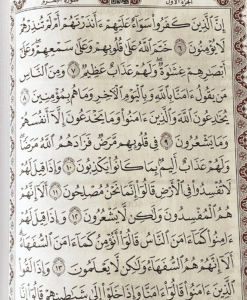 الجزء الأول سورة البقرة
إِنَّ الَّذِينَ كَفَرُوا سَوَاءٌ عَلَيْهِمْ ءَأَنذَرْتَهُمْ أَمْ لَمْ تُنذِرْهُمْ
لَا يُؤْمِنُونَ ٦ خَتَمَ اللَّهُ عَلَىٰ قُلُوبِهِمْ وَعَلَىٰ سَمْعِهِمْ وَعَلَىٰ
أَبْصَٰرِهِمْ غِشَٰوَةٌ وَلَهُمْ عَذَابٌ عَظِيمٌ ٧ وَمِنَ النَّاسِ
مَن يَقُولُ ءَامَنَّا بِاللَّهِ وَبِالْيَوْمِ الْءَاخِرِ وَمَا هُم بِمُؤْمِنِينَ ٨
يُخَٰدِعُونَ اللَّهَ وَالَّذِينَ ءَامَنُوا وَمَا يَخْدَعُونَ إِلَّا أَنفُسَهُمْ
وَمَا يَشْعُرُونَ ٩ فِي قُلُوبِهِم مَّرَضٌ فَزَادَهُمُ اللَّهُ مَرَضًا
وَلَهُمْ عَذَابٌ أَلِيمٌ بِمَا كَانُوا يَكْذِبُونَ ١٠ وَإِذَا قِيلَ لَهُمْ
لَا تُفْسِدُوا فِي الْأَرْضِ قَالُوا إِنَّمَا نَحْنُ مُصْلِحُونَ ١١ أَلَا إِنَّهُمْ
هُمُ الْمُفْسِدُونَ وَلَٰكِن لَّا يَشْعُرُونَ ١٢ وَإِذَا قِيلَ لَهُمْ
ءَامِنُوا كَمَا ءَامَنَ النَّاسُ قَالُوا أَنُؤْمِنُ كَمَا ءَامَنَ السُّفَهَاءُ
أَلَا إِنَّهُمْ هُمُ السُّفَهَاءُ وَلَٰكِن لَّا يَعْلَمُونَ ١٣ وَإِذَا لَقُوا
الَّذِينَ ءَامَنُوا قَالُوا ءَامَنَّا وَإِذَا خَلَوْا إِلَىٰ شَيَٰطِينِهِمْ قَالُوا